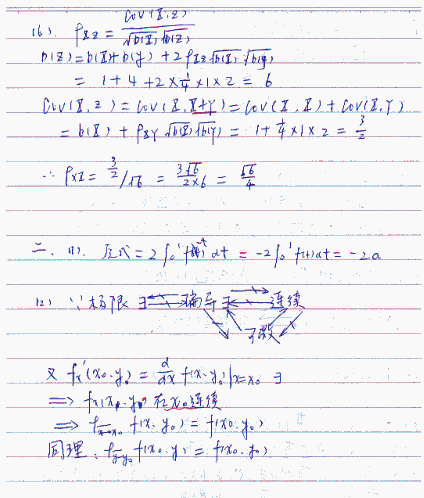 (6) ρxz = Cov(X,Z) / √D(X) √D(Z)
D(Z) = D(X) + D(Y) + 2ρxy √D(X) √D(Y)
= 1 + 4 + 2 × 1/4 × 1 × 2 = 6
Cov(X,Z) = Cov(X,X+Y) = Cov(X,X) + Cov(X,Y)
= D(X) + ρXY √D(X) √D(Y) = 1 + 1/4 × 1 × 2 = 3/2
∴ ρxz = 3/2 / √6 = 3√6 / 2×6 = √6/4
二、(1). 原式 = 2∫₀¹ f dt = -2∫₀¹ f(t)dt = -2a
(2) ∵ 极限 ∃ 偏导 ∃ 连续
可微
又 fx'(x₀,y₀) = d/dx f(x,y₀)|x=x₀ ∃
⇒ f(x,y₀) 在x₀连续
⇒ f(x,y₀) = f(x₀,y₀)
同理: f(x₀,y) = f(x₀,y₀)